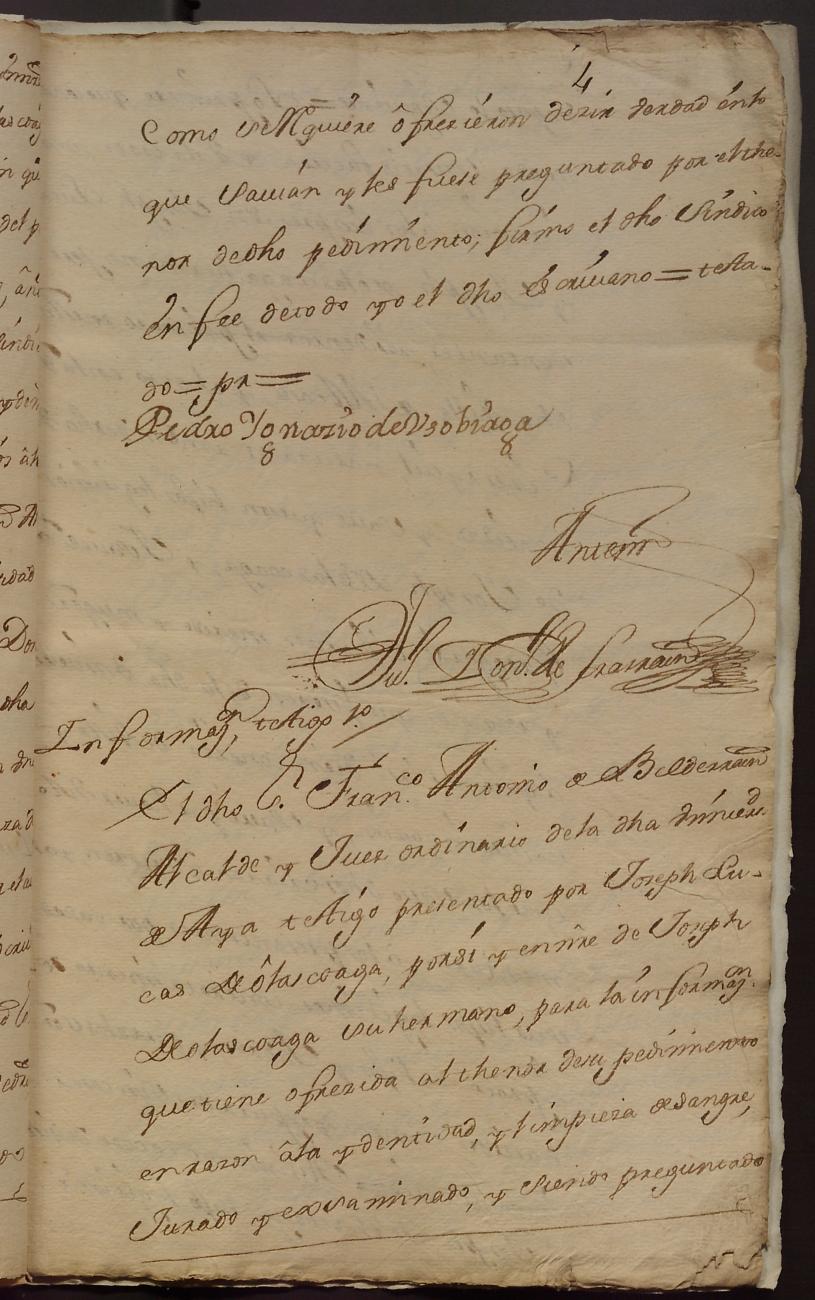 4
Como se Rquiere ôfrecieron dezir verdad énlo
que savian y les fuese preguntado por elthe-
nor dedho pedimiento; firmo el dho Síndico
én fee detodo yo el dho éscrivano = testa-
do = pr =
Pedro Ygnazio de Vsobiaga
Antemi
de Larrain
Informaz.on testigo 1.o
El dho S.r Fran.co Antonio de Belderrain
Alcalde y Juez ordinario dela dha
de Aya testigo presentado por Joseph Lu-
cas de ôlascoaga, porsí y ennre de Joseph
de olascoaga su hermano, para la informaz.on
que tiene ofrezida althenor desu pedimiento
enrazon âla ydentidad, y limpieza de sangre,
Jurado y exsaminado, y siendo preguntado